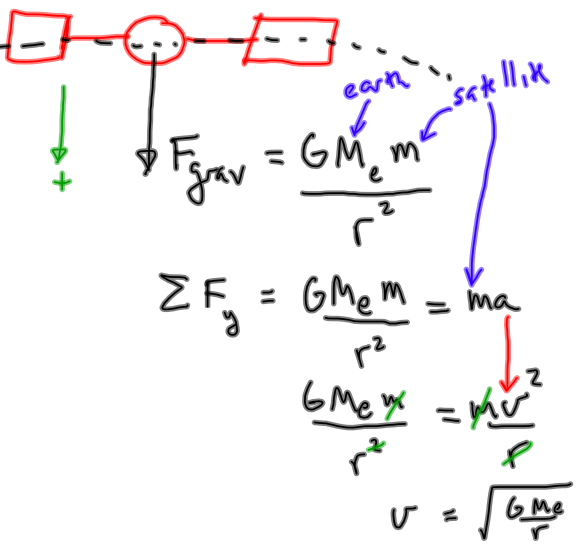 earth satellite
+
F_grav = GM_e m / r²
ΣF_y = GM_e m / r² = ma
GM_e m / r² = mv² / r
v = √(GMe / r)